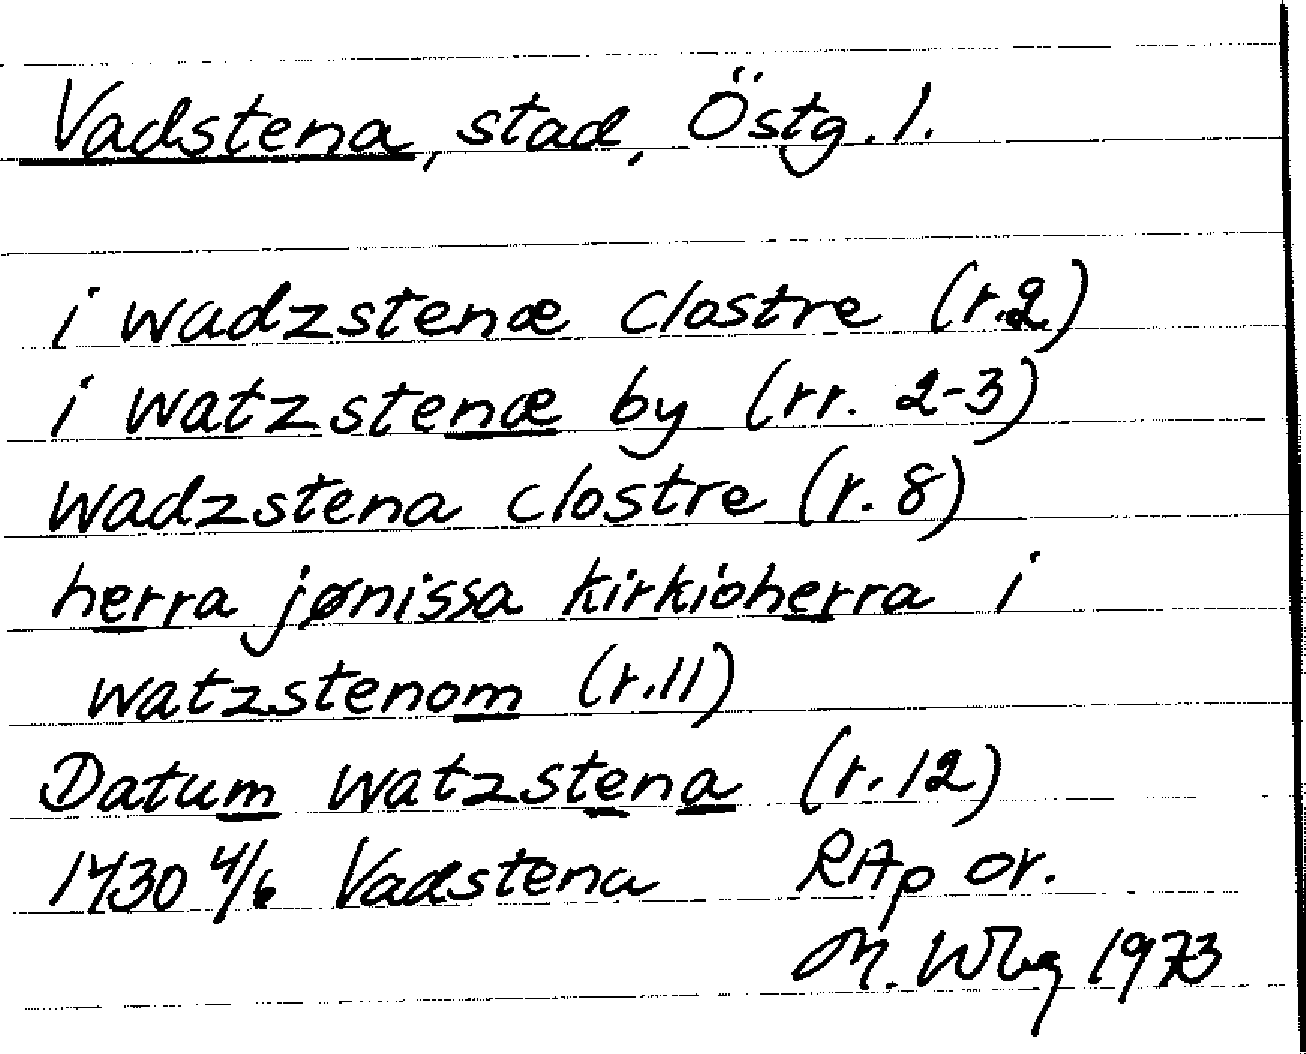 Vadstena, stad, Östg. l.
i wadzstenæ clostre (r.2)
i watzstenæ by (rr. 2-3)
wadzstena clostre (r. 8)
herra jønissa kirkioherra i
watzstenom (r.11)
Datum watzstena (r.12)
1430 4/6 Vadstena RAp or.
M. Wbg 1973